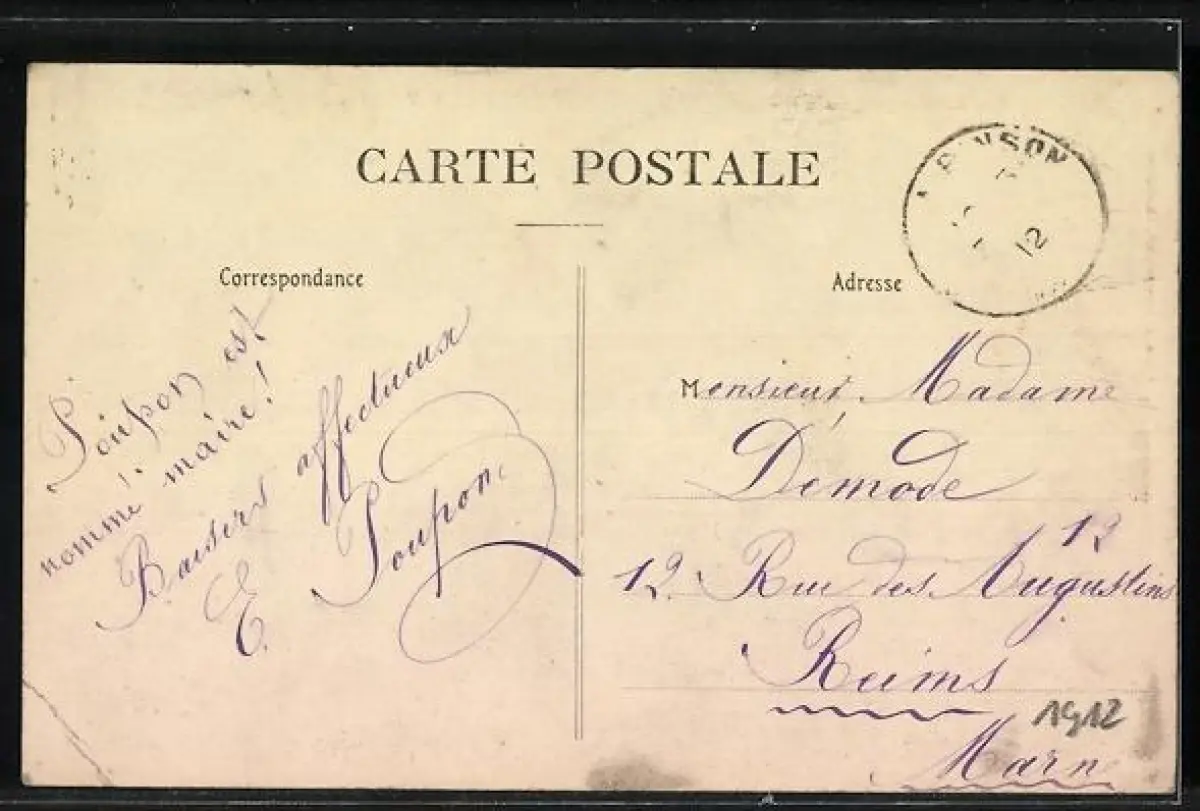 CARTE POSTALE
Correspondance
Poupon est
nommé maire!
Baisers affectueux
E Poupon
Adresse
12
Monsieur, Madame
Démode
12 Rue des Augustins 12
Reims
Marne
1912